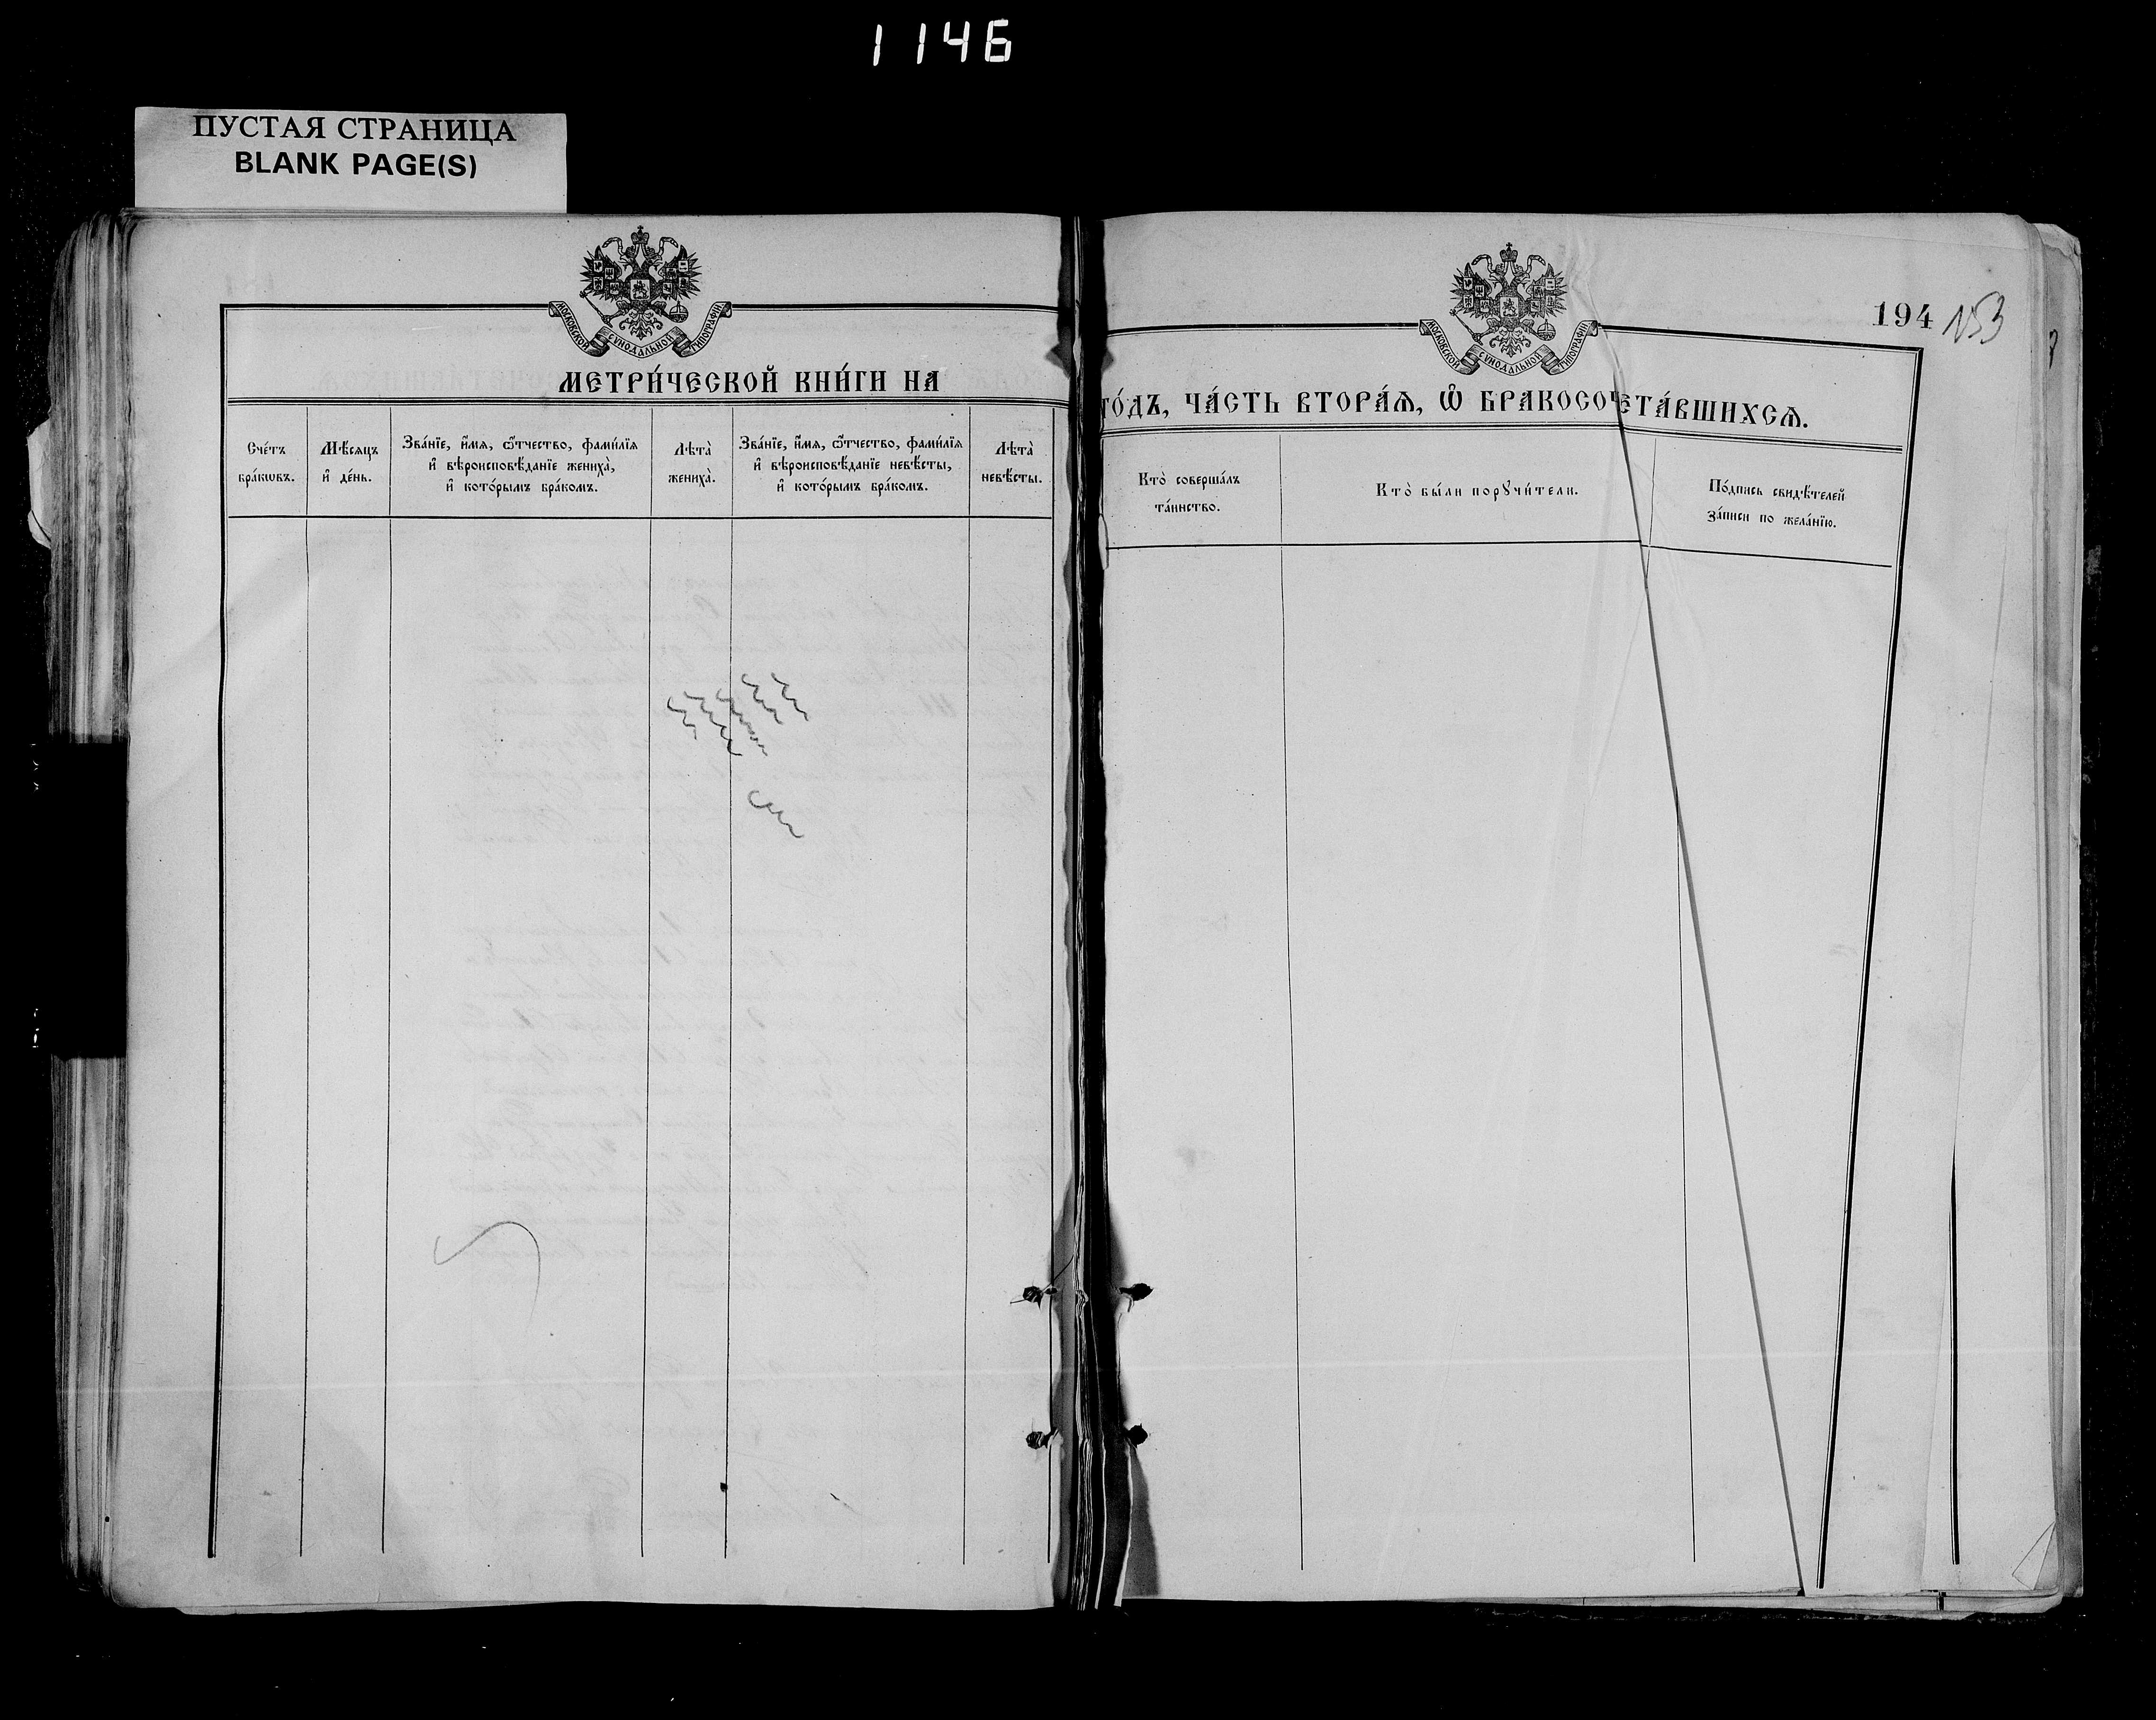 1146
ПУСТАЯ СТРАНИЦА
BLANK PAGE(S)
МОСКОВСКОЙ СѴНОДАЛЬНОЙ ТИПОГРАФІИ
МЕТРИ́ЧЕСКОЙ КНИ́ГИ НА
Сче́тъ
бра́кѡвъ.
Мѣ́сяцъ
и҆ де́нь.
Зва́нїе, и҆́мя, ѻ҆́тчество, фами́лїя
и҆ вѣроисповѣ́данїе жениха̀,
и҆ кото́рымъ бра́комъ.
Лѣта̀
жениха̀.
Зва́нїе, и҆́мя, ѻ҆́тчество, фами́лїя
и҆ вѣроисповѣ́данїе невѣ́сты,
и҆ кото́рымъ бра́комъ.
Лѣта̀
невѣ́сты.
МОСКОВСКОЙ СѴНОДАЛЬНОЙ ТИПОГРАФІИ
194 153
ГО́ДЪ, ЧА́СТЬ ВТОРА́Ѧ, Ѡ҆ БРАКОСОЧЕТА́ВШИХСѦ.
Кто̀ соверша́лъ
та́инство.
Кто̀ бы́ли порꙋчи́тели.
По́дпись свидѣ́телей
за́писи по жела́нїю.